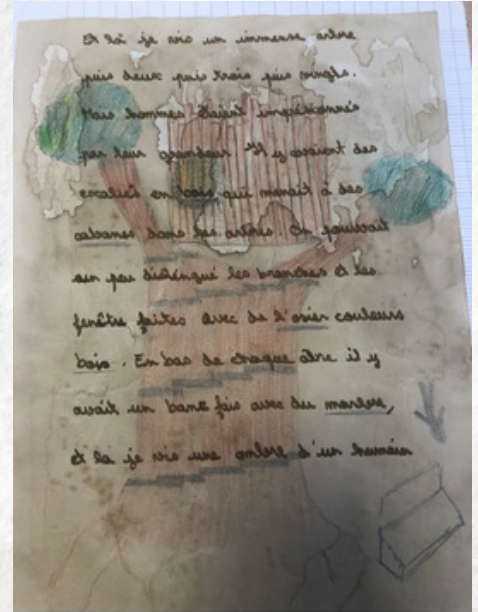 Et là je vis un immense arbre
puis deux puis trois puis vingts.
Mais hommes étaient impréssionnés
par leur grandeur. Il y avaient des
escaliés en bois qui menait à des
cabanes dans les arbres. On pouvait
un peu les branches et les
fenêtre faites avec de l'osier couleurs
bois. En bas de chaque âbre il y
avait un banc fais avec du marbre,
et là je vis une ombre d'un humain